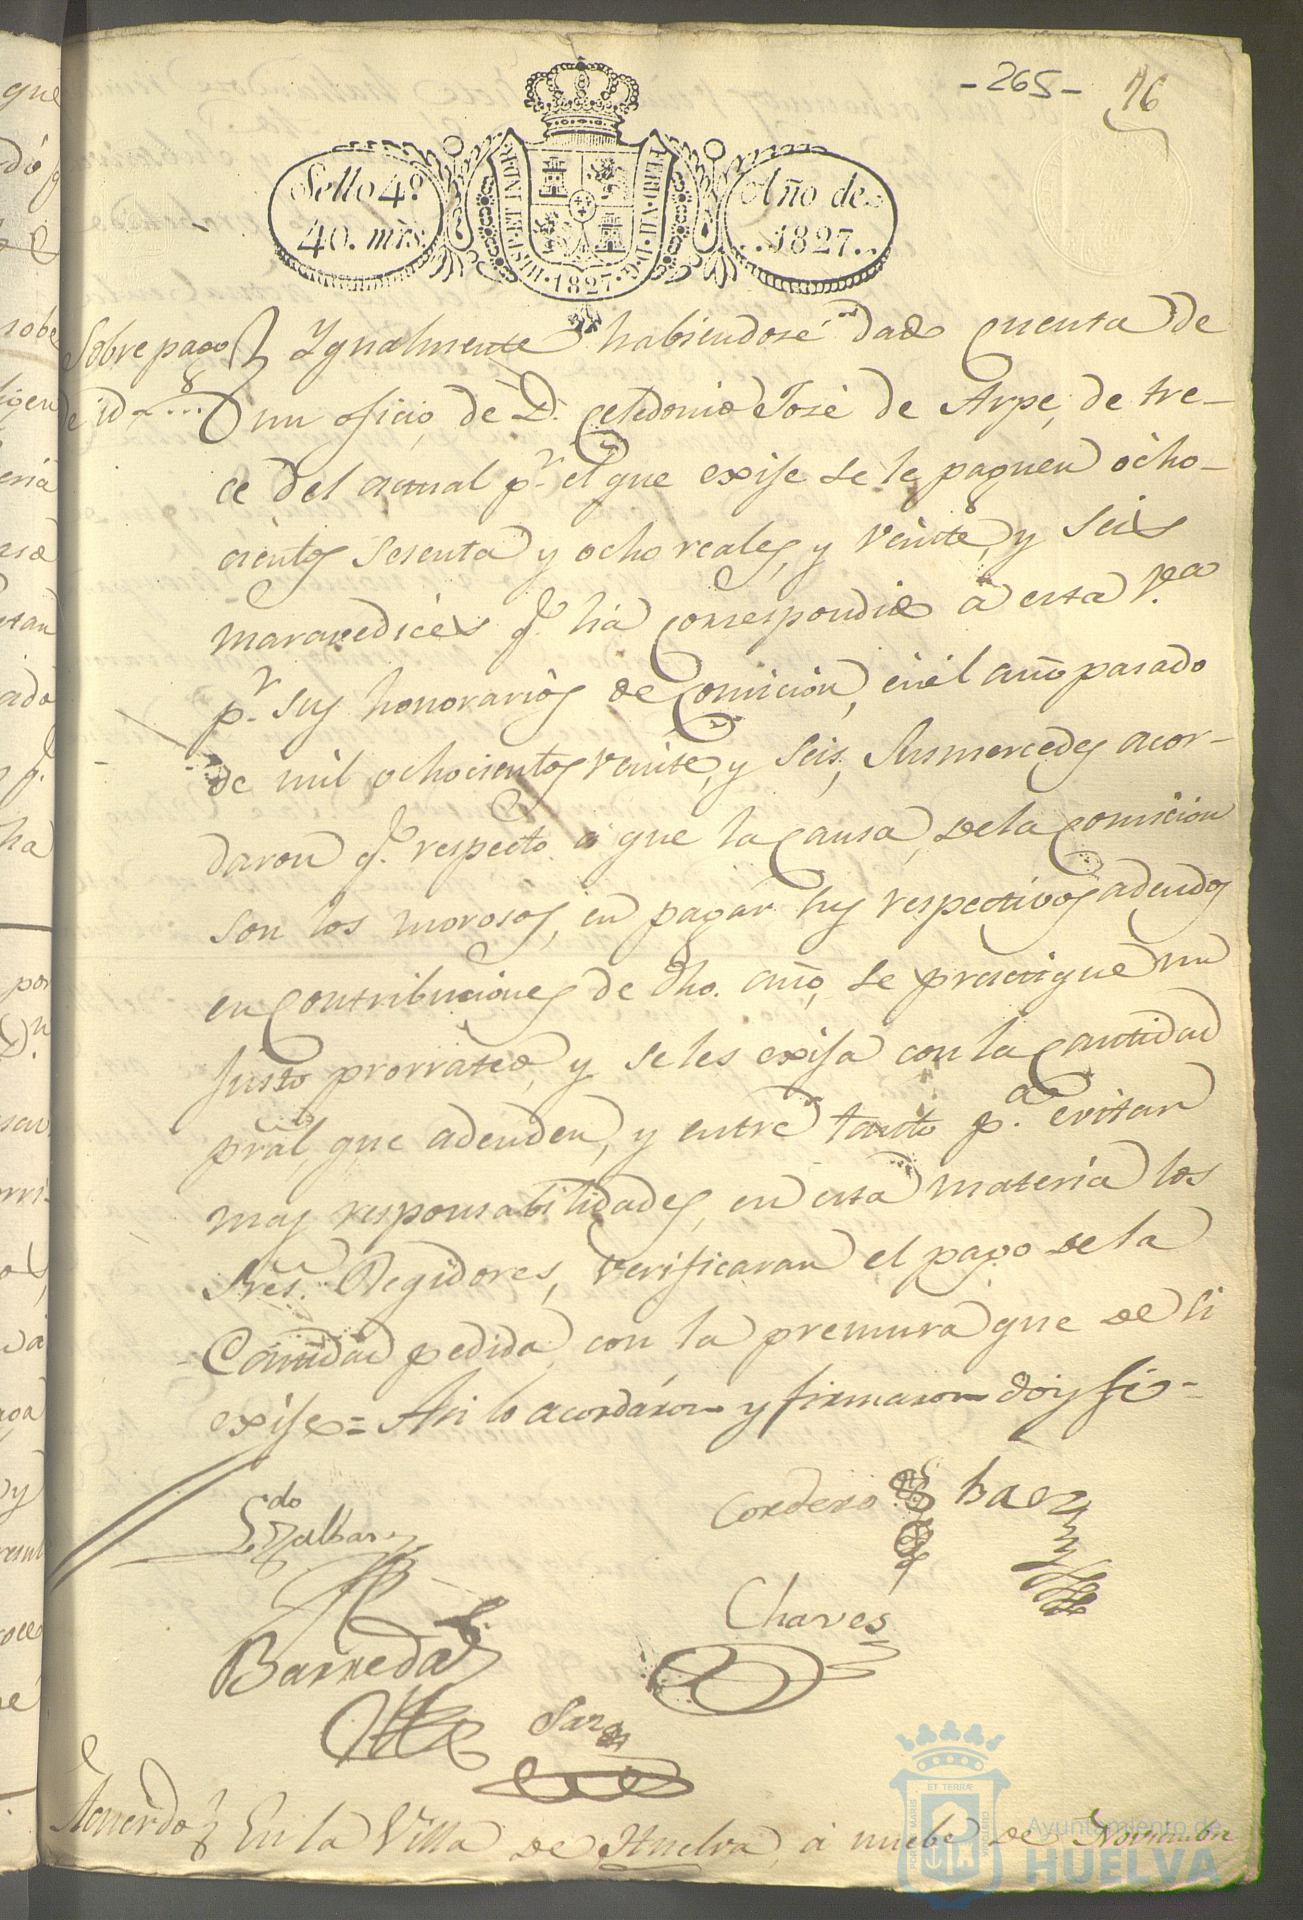 - 265 -
76
Sello 4º
40. mrs
HISP. ET IND. R.
FERD. VII. D. G.
. 1827 .
Año de
..1827..
Sobre pago
de id
Ygualmente habiendose dado Cuenta de
un oficio, de D. Celedonio José de Arpe, de tre-
ce del actual pr. el que exije se le paguen ocho-
cientos sesenta y ocho reales, y veinte, y seis
maravedices q.e ha correspondido á esta V.ª
pr. sus honorarios de Comicion, en el año pasado
de mil ochocientos veinte, y seis, Susmercedes acor-
daron q.e respecto á que la Causa, de la Comicion
son los morosos, en pagar sus respectivos adeudos
en Contribuciones de dho. año, se practique un
justo prorrateo, y se les exija con la Cantidad
pral, que adeuden, y entre tanto p.ª evitar
mas responsabilidades, en esta materia los
Sres. Regidores, verificaran el pago de la
Cantidad pedida, con la premura que de si
exije = Asi lo acordáron y firmaron doy fé -
L.do Zalbar
Cordero
Baez
Chaves
Barreda
Saz
Acuerdo
En la Villa de Huelva, á nuebe de Noviembre
PORTUS MARIS
ET TERRÆ
CUSTODIA
Ayuntamiento de
HUELVA